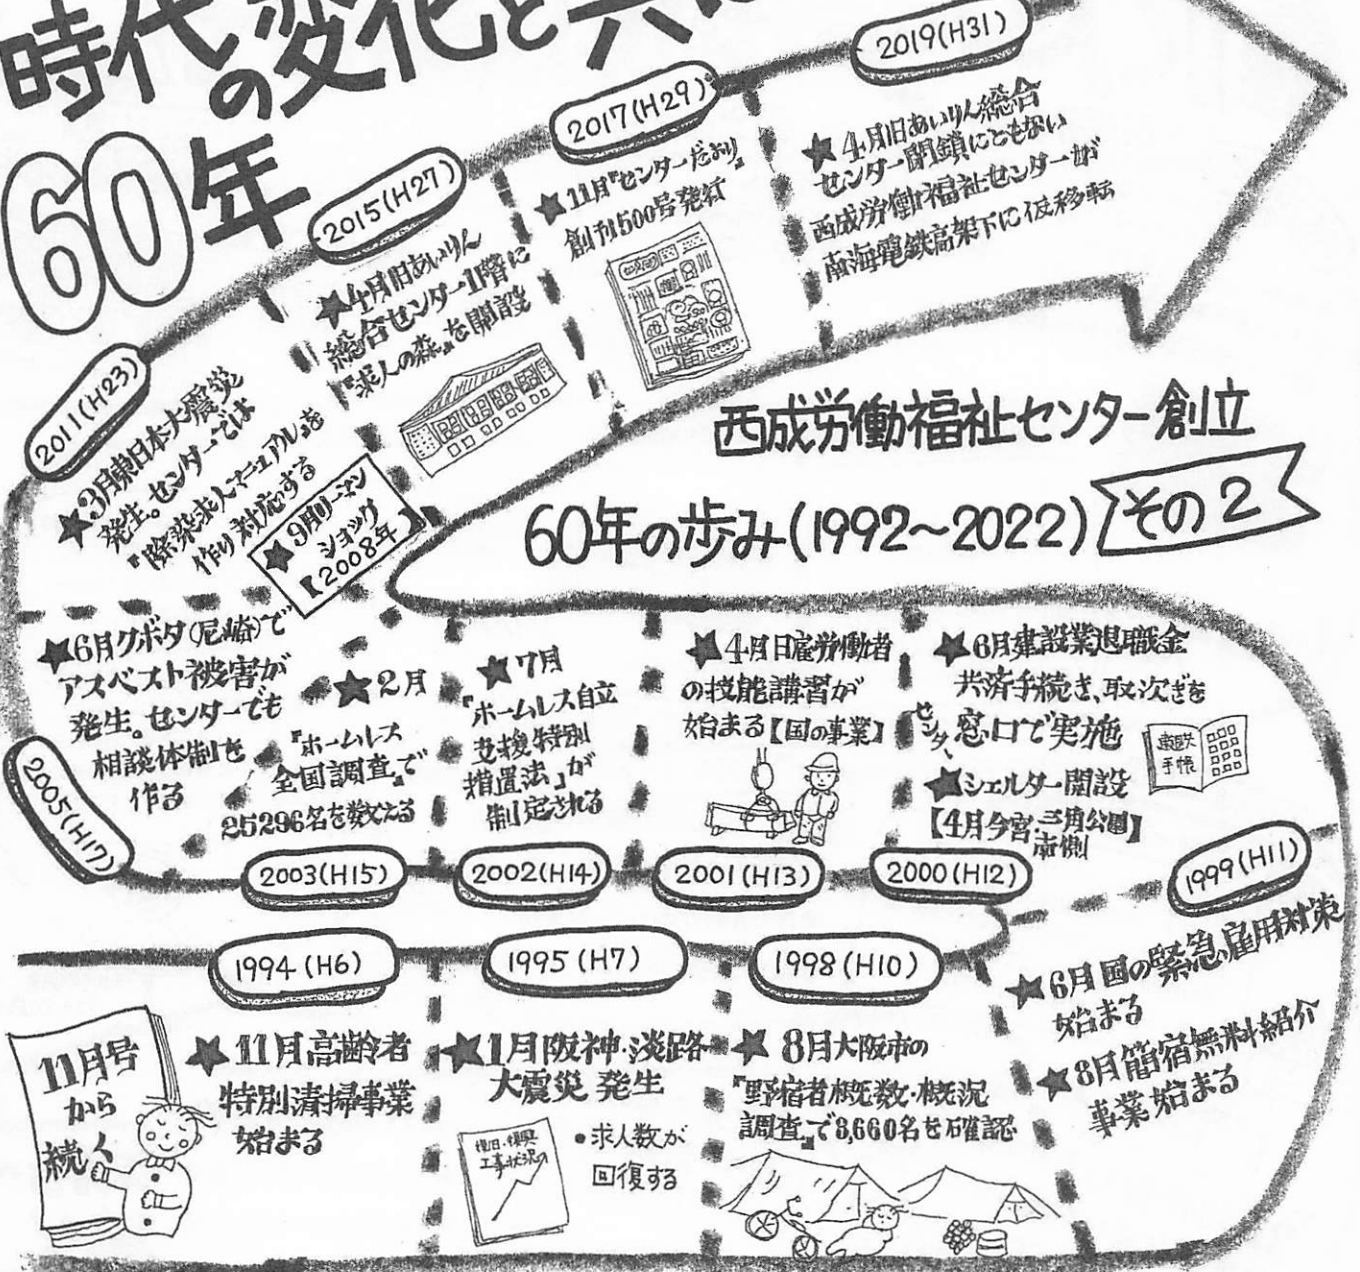 時代
の変化と共に
60年
西成労働福祉センター創立
60年の歩み(1992～2022)
その2
11月号
から
続く
1994(H6)
★11月高齢者
特別清掃事業
始まる
1995(H7)
★1月阪神・淡路
大震災 発生
復旧・復興
工事状況の
•求人数が
回復する
1998(H10)
★8月大阪市の
『野宿者概数・概況
調査』で8,660名を確認
1999(H11)
★6月国の緊急雇用対策
始まる
★8月簡宿無料紹介
事業始まる
2000(H12)
★6月建設業退職金
共済手続き、取次ぎを
センター窓口で実施
建退共
手帳
★シェルター開設
【4月今宮三角公園
南側】
2001(H13)
★4月日雇労働者
の技能講習が
始まる【国の事業】
2002(H14)
★7月
『ホームレス自立
支援特別
措置法』が
制定される
2003(H15)
★2月
『ホームレス
全国調査』で
25296名を数える
2005(H17)
★6月クボタ(尼崎)で
アスベスト被害が
発生。センターでも
相談体制を
作る
★9月リーマン
ショック
【2008年】
2011(H23)
★3月東日本大震災
発生。センターでは
『除染求人マニュアル』を
作り対応する
2015(H27)
★4月旧あいりん
総合センター1階に
『求人の森』を開設
2017(H29)
★11月『センターだより』
創刊500号発行
2019(H31)
★4月旧あいりん総合
センター閉鎖にともない
西成労働福祉センターが
南海電鉄高架下に仮移転